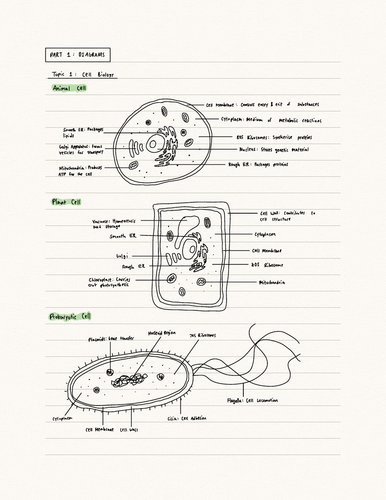 PART 1: DIAGRAMS
Topic 1: Cell Biology
Animal Cell
Cell membrane: Controls entry & exit of substances
Cytoplasm: Medium of metabolic reactions
Smooth ER: Packages
lipids
80S Ribosomes: Synthesise proteins
Golgi Apparatus: Forms
vesicles for transport
Nucleus: Stores genetic material
Rough ER: Packages proteins
Mitochondria: Produces
ATP for the cell
Plant Cell
Cell Wall: Contributes to
cell structure
Vacuole:
and storage
Smooth ER
Cytoplasm
Golgi
Cell Membrane
Rough ER
80S Ribosomes
Chloroplast: Carries
out photosynthesis
Mitochondria
Prokaryotic Cell
Nucleoid Region
Plasmids: Gene transfer
70S Ribosomes
Flagella: Cell Locomotion
Cytoplasm
Cell Membrane
Cell Wall
Cell Adhesion